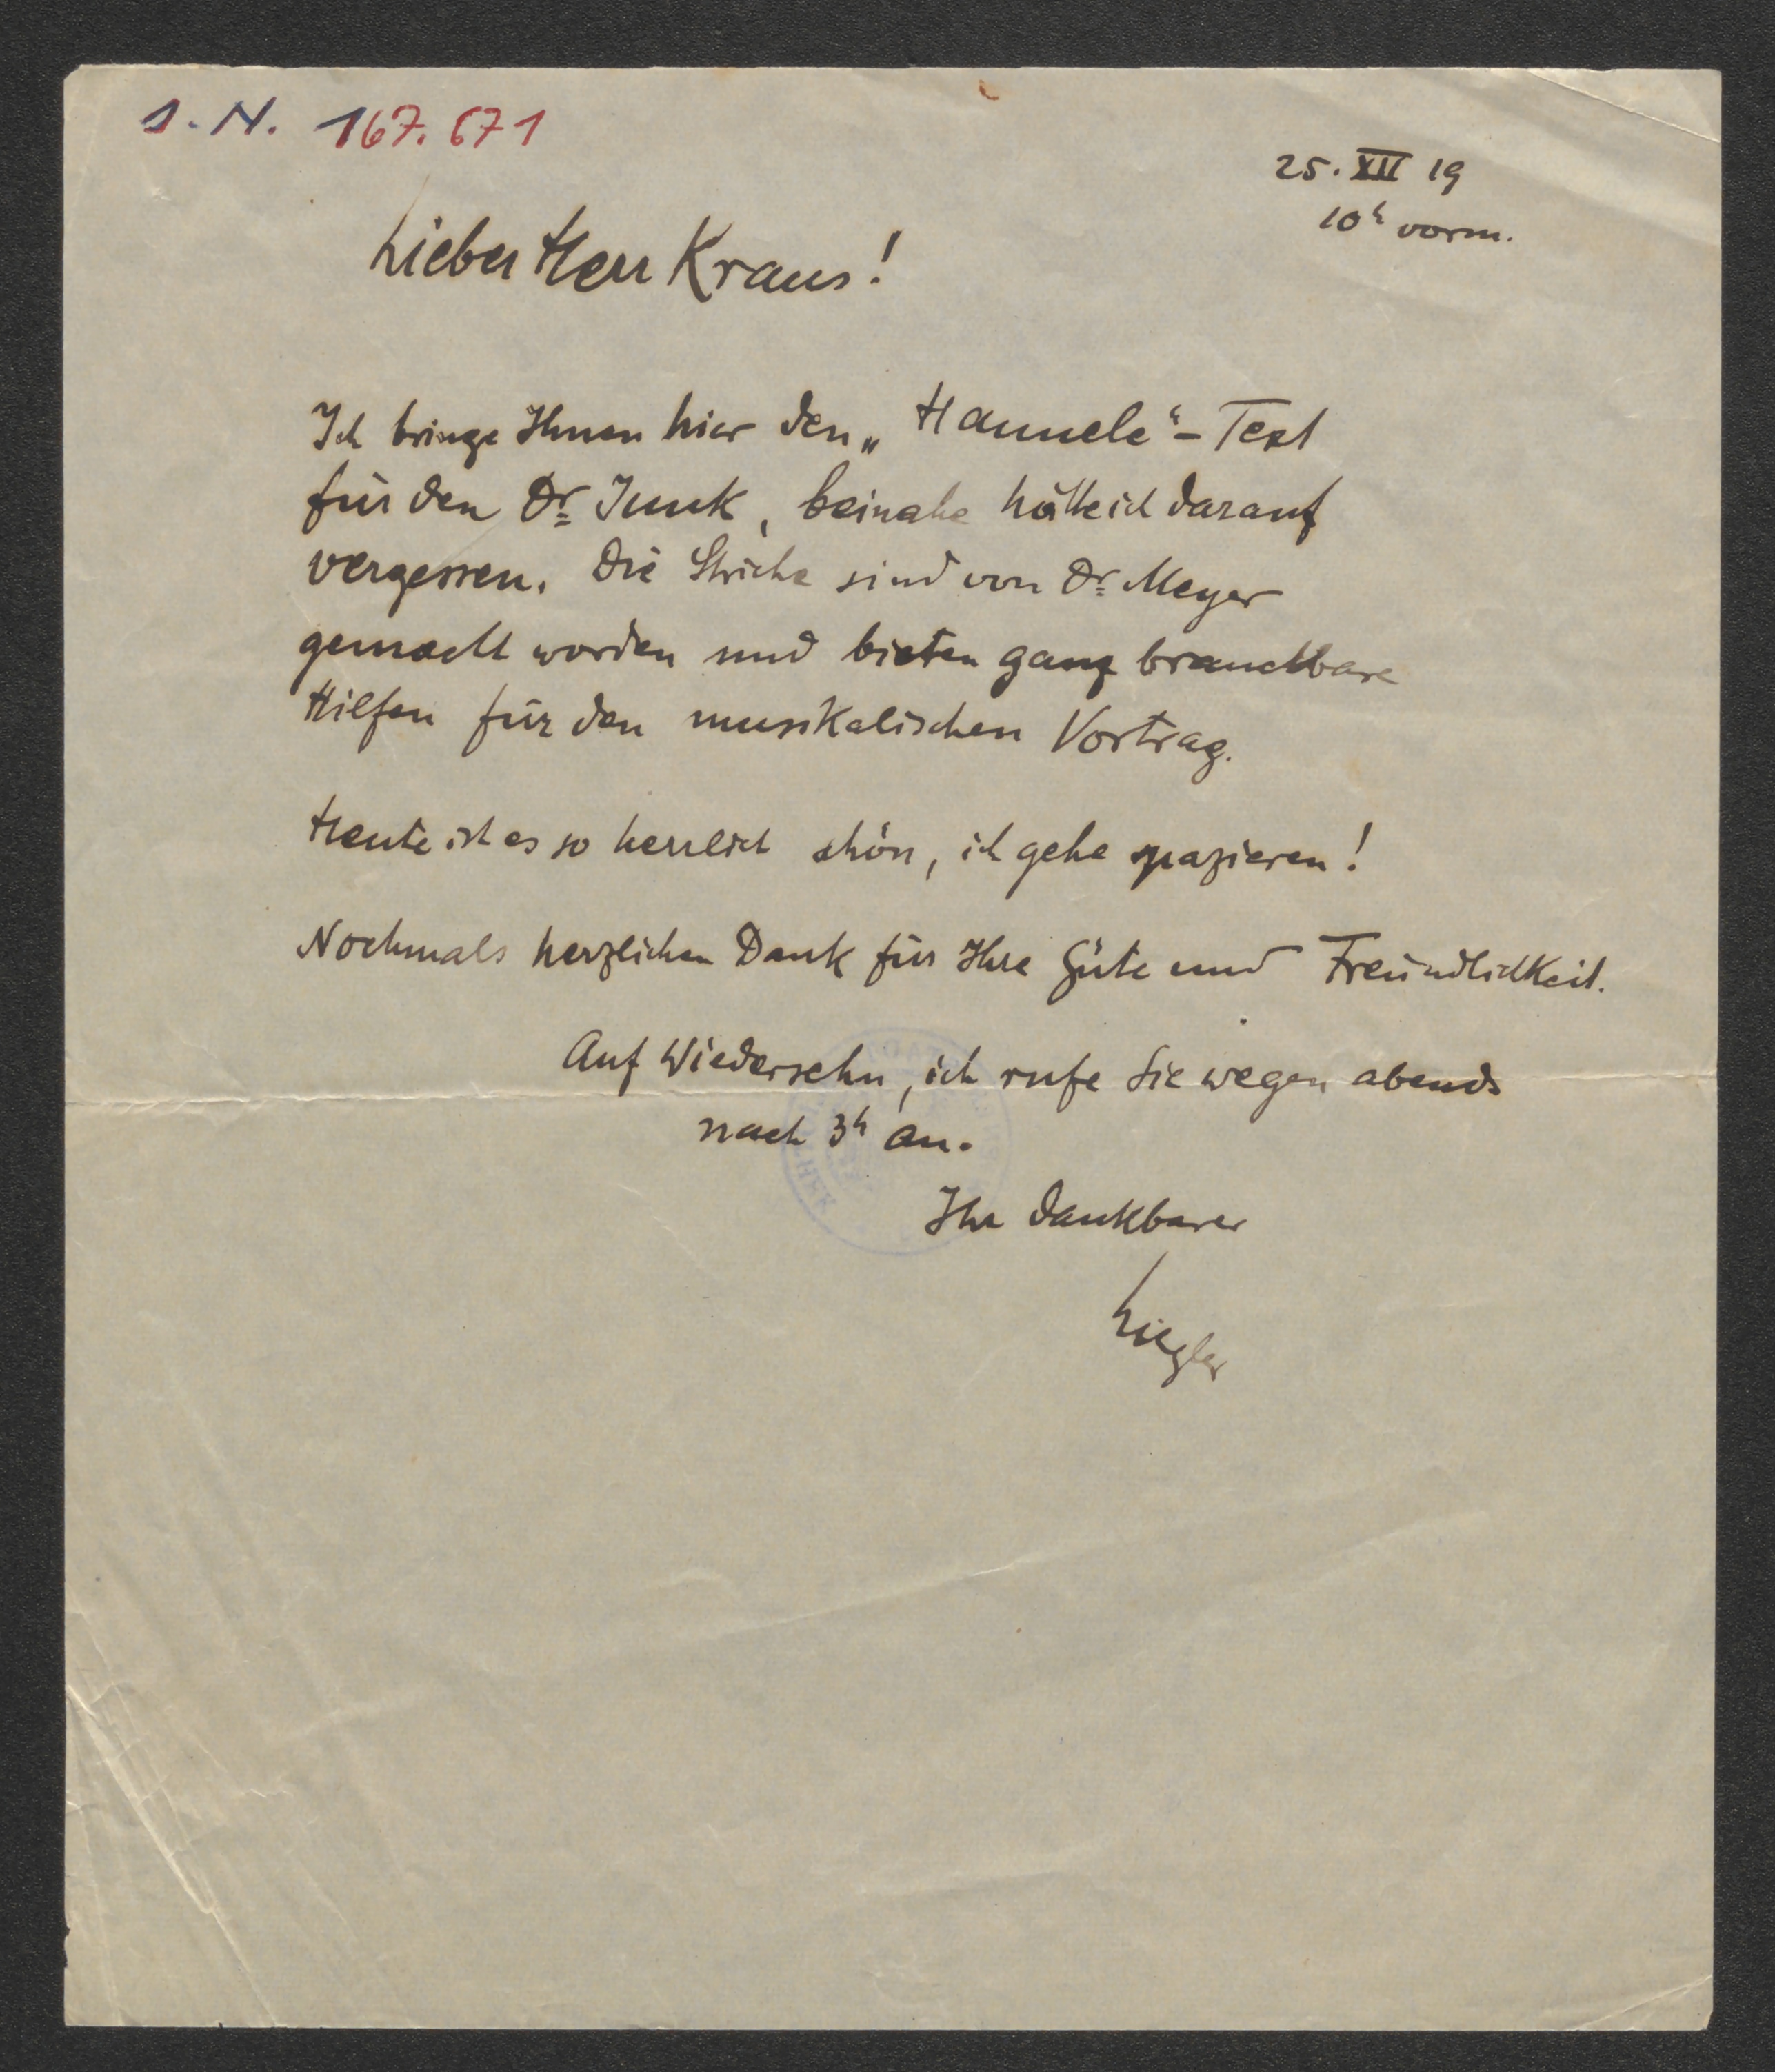 I. N. 167.671
25. XII 19
10h vorm.
Lieber Herr Kraus!
Ich bringe Ihnen hier den „Hannele“-Text
für den Dr Junk, beinahe hätte ich darauf
vergessen. Die Striche sind von Dr Meyer
gemacht worden und bieten ganz brauchbare
Hilfen für den musikalischen Vortrag.
Heute ist es so herrlich schön, ich gehe spazieren!
Nochmals herzlichen Dank für Ihre Güte und Freundlichkeit.
Auf Wiedersehn, ich rufe Sie wegen abends
nach 3h an.
Ihr dankbarer
Liegler